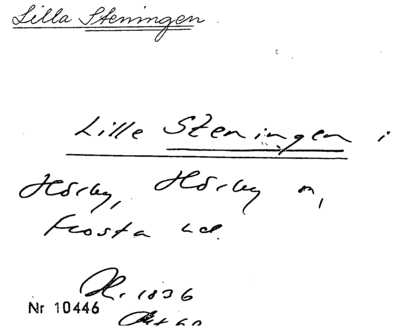 Lilla Steningen.
Lille Steningen i
Hörby, Hörby sn,
Frosta hd.
Nr 10446